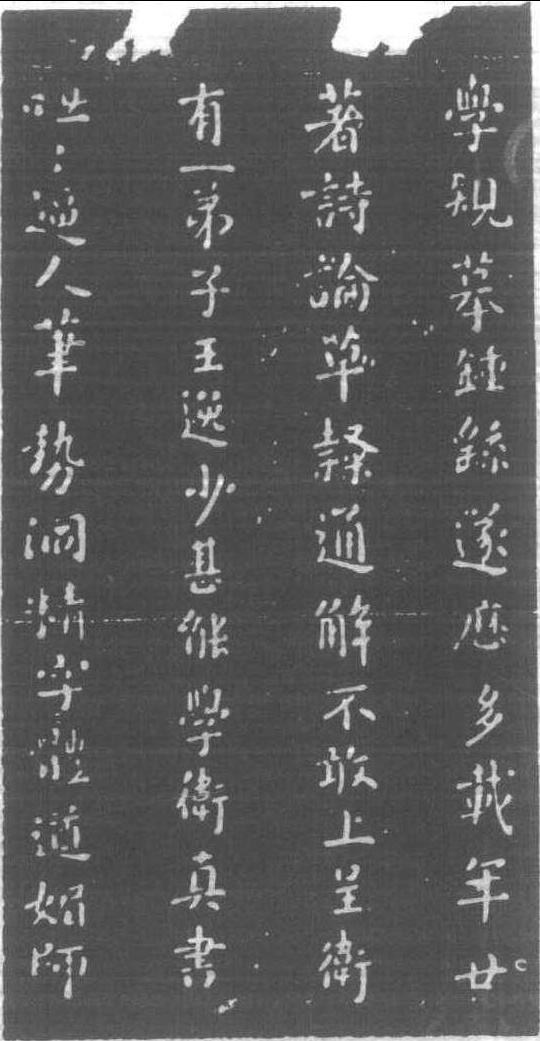 學規摹鍾繇遂歷多載年廿
著詩論草隸通解不敢上呈衛
有一弟子王逸少甚能學衛真書
咄〻逼人筆勢洞精字體遒媚師